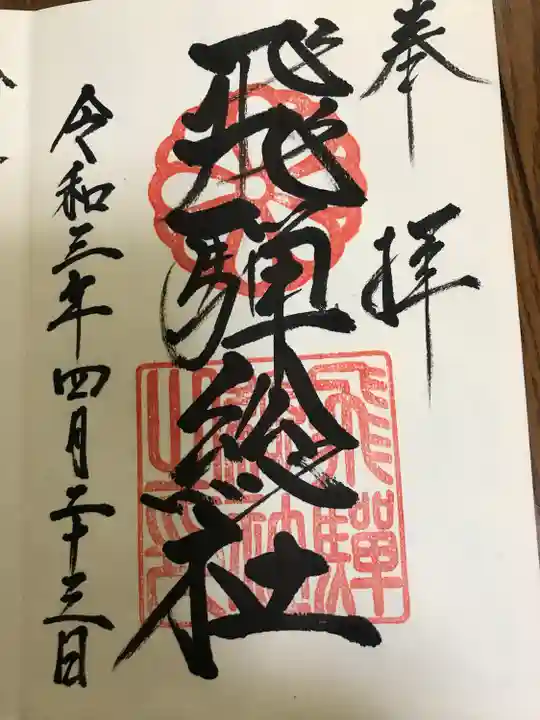 奉拝
飛騨総社
飛騨
総社
之印
令和三年四月二十三日